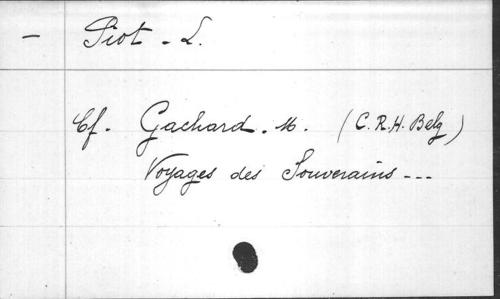 — Piot - L.
Cf. Gachard. M. (C.R.H. Belg)
Voyages des Souverains ---